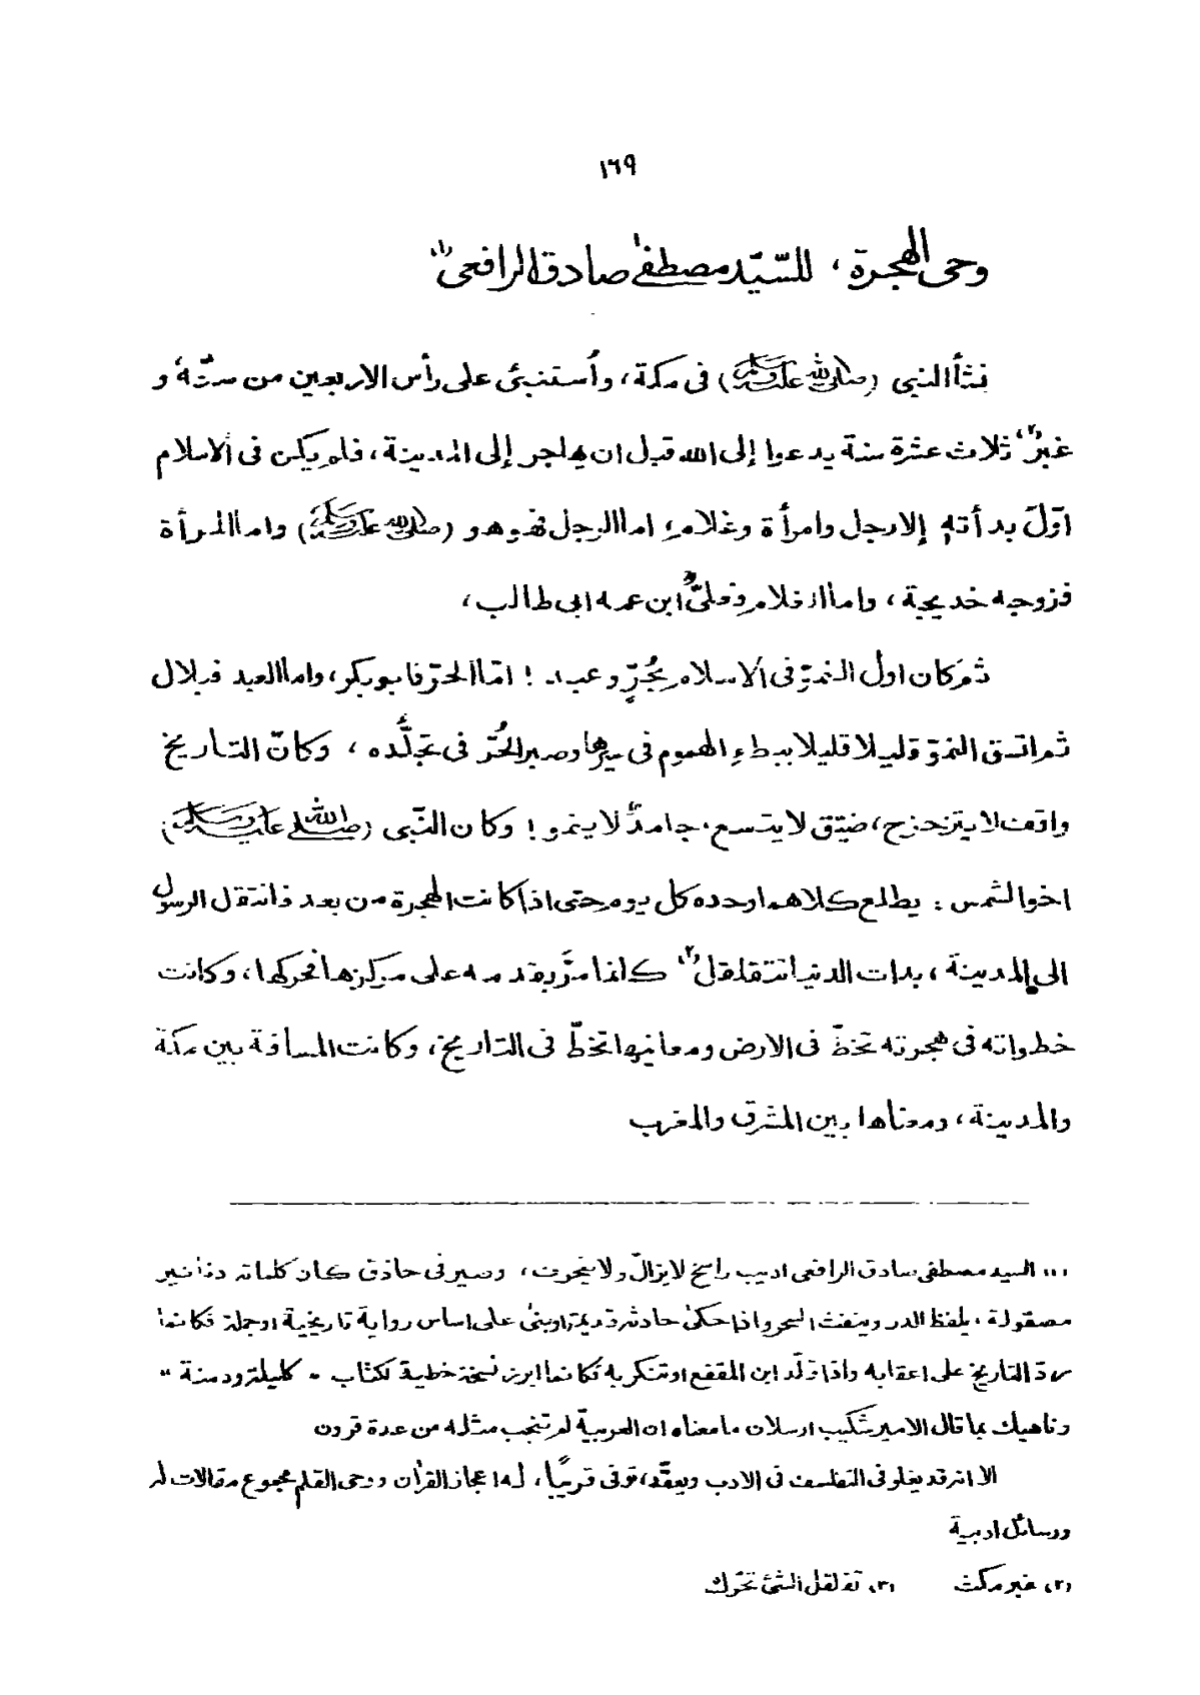 ١٦٩
وحى الهجرة ، للسّيّد مصطفىٰ صادق الرافعى (١)
نشأ النبى (صلى الله عليه وسلم) فى مكة ، وأُستنبئ على رأس الاربعين من سنّه ، و
غبر (٢) ثلاث عشرة سنة يدعوا إلى الله قبل ان يهاجر إلى المدينة ، فلم يكن فى الاسلام
اوّلَ بدأته إلا رجل وامرأة وغلام ، اما الرجل فهو هو (صلى الله عليه وسلم) واما المرأة
فزوجه خديجة ، واما الغلام فعلىٌّ ابن عمه ابى طالب ،
ثم كان اول النموّ فى الاسلام بحُرٍّ وعبد ! امّا الحرّ فابوبكر ، واما العبد فبلال
ثم اتسق النموّ قليلا قليلا ببطء الهموم فى سيرها وصبر الحُرّ فى تجلُّده ، وكانّ التاريخ
واقف لا يتزحزح ، ضيّق لا يتسع ، جامدٌ لا ينمو ! وكان النّبى (صلى الله عليه وسلم)
اخوا لشمس : يطلع كلاهما وحده كل يوم حتى اذا كانت الهجرة من بعد فانتقل الرسول
الى المدينة ، بدات الدنيا تتقلقل (٣) كانما مرَّ بقدمه على مركزها فحركها ، وكانت
خطواته فى هجرته تخطّ فى الارض ومعانيها تخطّ فى التاريخ ، وكانت المسافة بين مكة
والمدينة ، ومعناها بين المشرق والمغرب
(١) السيد مصطفى صادق الرافعى اديب راسخ لا يزالّ ولا ، وصيرفى حاذق كان كلماته دنانير
مصقولة ، يلفظ الدر وينفث السحر واذا حكىٰ حادثة قديمة اوبنىٰ على اساس رواية تاريخية اوجملة فكانما
ردّ التاريخ على اعقابه واذا قلّد ابن المقفع اوتنكر به فكانما ابرز نسخة خطية لكتاب " كليلة ودمنة "
وناهيك بما قال الامير شكيب ارسلان ما معناه ان العربيةّ لم تنجب مثله من عدة قرون
الا انه قد يغلو فى التفلسف فى الادب ويعقّد ، توفى قريبًا ، له اعجاز القرأن ووحى القلم مجموع مقالات له
ورسائل ادبية
(٢) غبر مكث (٣) تقلقل الشئ تحرّك